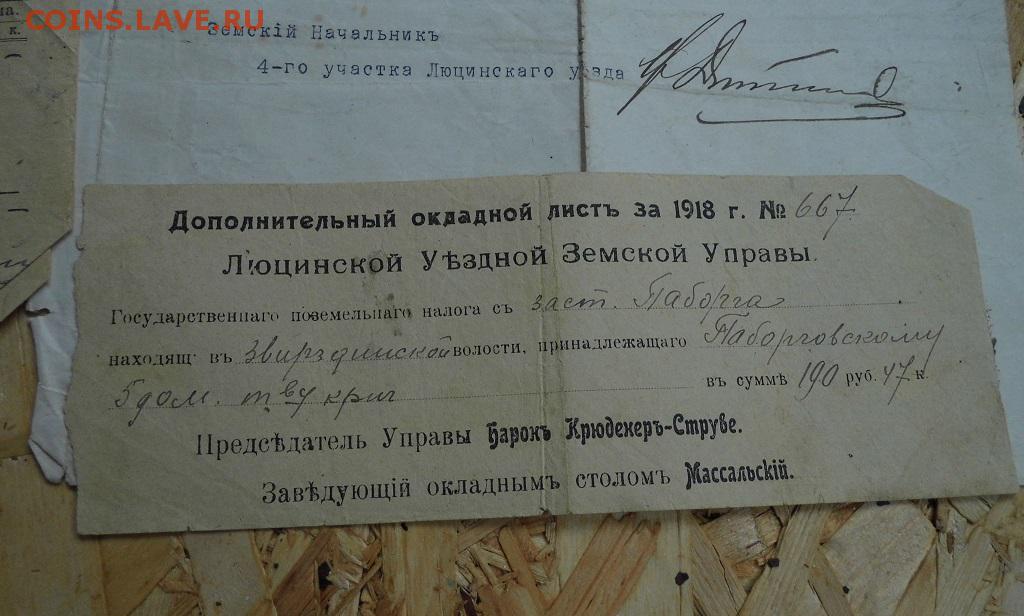 COINS.LAVE.RU
к.
Земскій Начальникъ
4-го участка Люцинскаго уѣзда
Дополнительный окладной листъ за 1918 г. № 667
Люцинской Уѣздной Земской Управы.
Государственнаго поземельнаго налога съ заст. Паборга
находящ: въ Звирздинской волости, принадлежащаго Паборговскому
5 дом. т ву крич
въ суммѣ 190 руб. 47 к.
Предсѣдатель Управы Баронъ Крюденеръ-Струве.
Завѣдующій окладнымъ столомъ Массальскій.